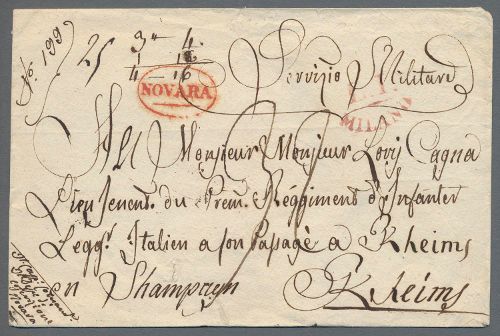 No. 199
25
3 " 4.
1 " 12
4 - 16
Servizio Militare
NOVARA
MILANO
A Monsieur Monsieur Lovij Cagna
du Prem. Régimens d'Infanter
Legg. Italien a son Passage a Rheims
en Shampayn Rheims